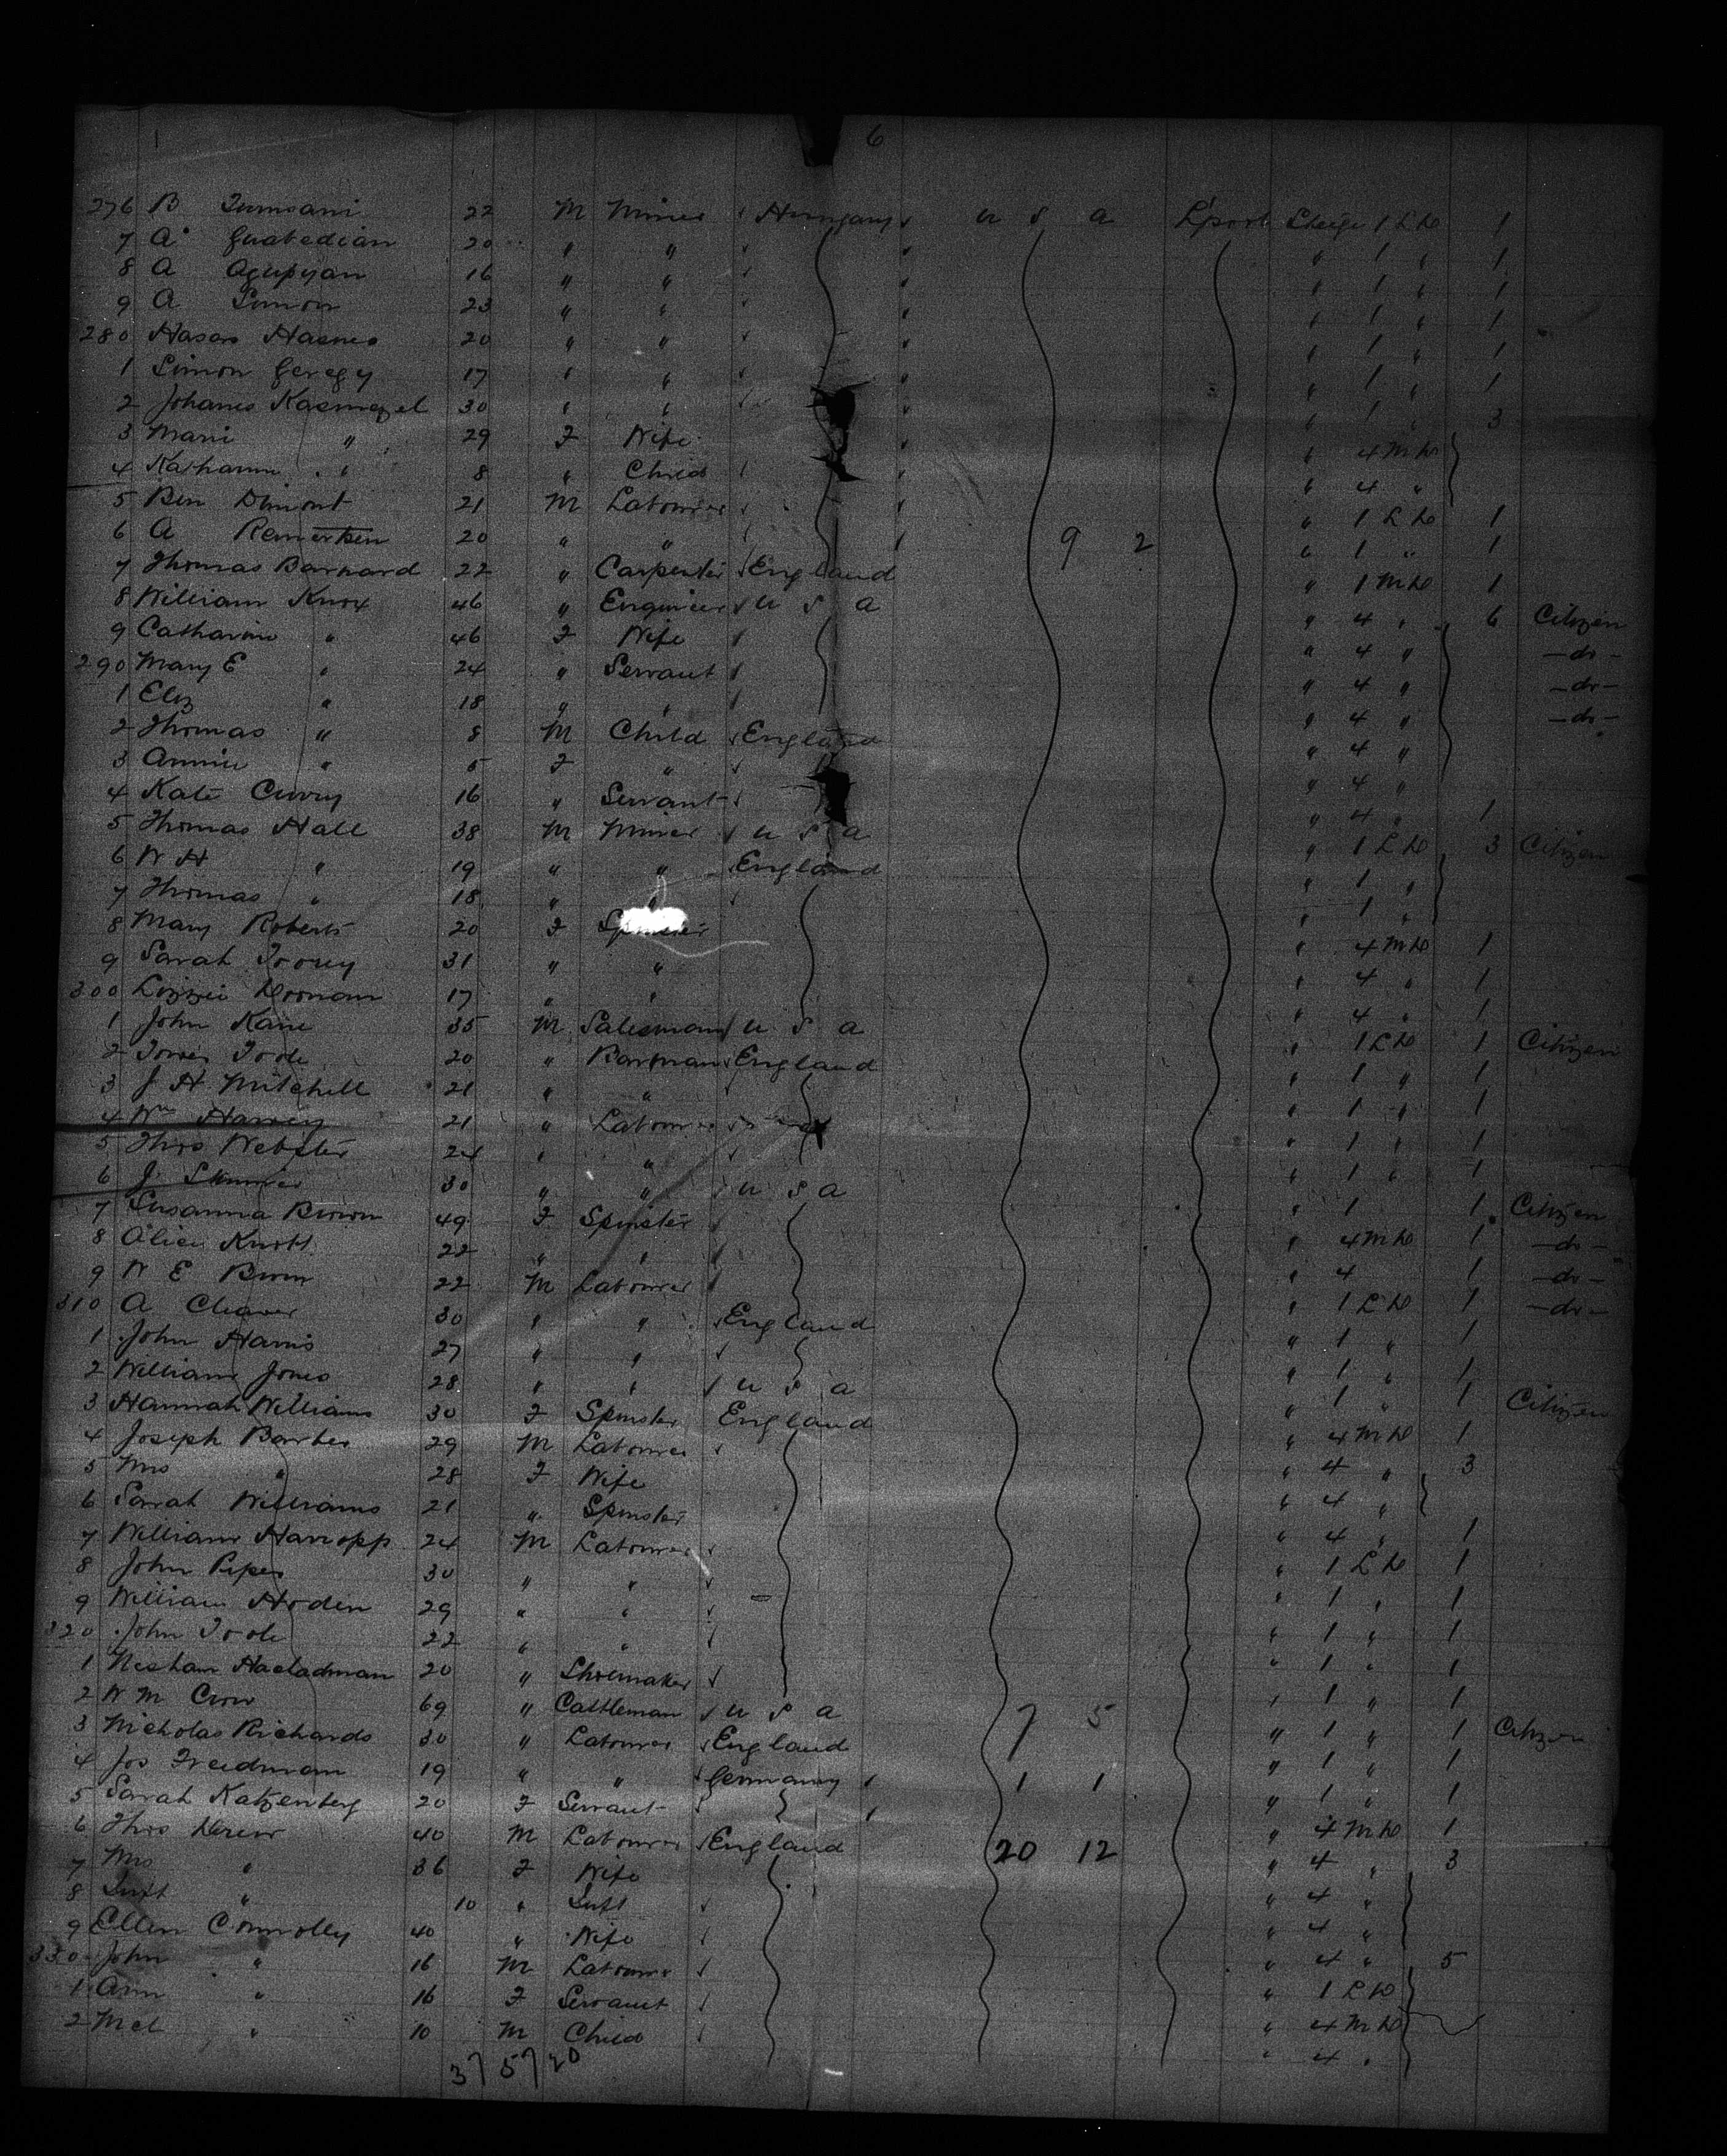 1 6
276 B 22 M Miner Hungary U S A L'pool 1 L D 1
7 A 20 " " " 1 " 1
8 A Agupyan 16 " " " 1 " 1
9 A Simon 23 " " " 1 " 1
280 20 " " " 1 " 1
1 Simon Geregy 17 " " " 1 " 1
2 Johanes 30 " " " 1 " 3
3 Mari " 29 F Wife " 4 M D
4 Katharine " 8 " Child " 4 "
5 Ben Dimont 21 M Labourer " 1 L D 1
6 A 20 " " 9 2 " 1 " 1
7 Thomas Barnard 22 " Carpenter England " 1 M D 1
8 William Knox 46 " Engineer U S A " 4 " 6 Citizen
9 Catharine " 46 F Wife " 4 " -do-
290 Mary E " 24 " Servant " 4 " -do-
1 Eliz " 18 " " " 4 " -do-
2 Thomas " 8 M Child England " 4 "
3 Annie " 5 F " " 4 "
4 Kate Curry 16 " Servant " 4 " 1
5 Thomas Hall 38 M Miner U S A " 1 L D 3 Citizen
6 W H " 19 " " England " 1 "
7 Thomas " 18 " " " 1 "
8 Mary Roberts 20 F Spinster " 4 M D 1
9 Sarah 31 " " " 4 " 1
300 Lizzie 17 " " " 4 " 1
1 John Kane 35 M Salesman U S A " 1 L D 1 Citizen
2 Toole 20 " Barman England " 1 " 1
3 J H Mitchell 21 " " " 1 " 1
4 Wm Harvey 21 " Labourer " 1 " 1
5 Thos Webster 24 " " " 1 " 1
6 J. Skinner 30 " " U S A " 1 1 Citizen
7 Susanna Brown 49 F Spinster " 4 M D 1 -do-
8 Alice Knott 22 " " " 4 1 -do-
9 W E Brown 22 M Labourer " 1 L D 1 -do-
310 A Cleaver 30 " " England " 1 " 1
1 John Harris 27 " " " 1 " 1
2 William Jones 28 " " U S A " 1 " 1 Citizen
3 Hannah Williams 30 F Spinster England " 4 M D 1
4 Joseph Barber 29 M Labourer " 4 " 3
5 Mrs " 28 F Wife " 4 "
6 Sarah Williams 21 " Spinster " 4 " 1
7 William Harropp 24 M Labourer " 1 L D 1
8 John Piper 30 " " " 1 " 1
9 William Hoden 29 " " " 1 " 1
320 John Toole 22 " " " 1 " 1
1 20 " Shoemaker " 1 " 1
2 W M Crow 69 " Cattleman U S A 7 5 " 1 " 1 Citizen
3 Nicholas Richards 30 " Labourer England " 1 " 1
4 Jos Freedman 19 " " Germany 1 1 " 1 " 1
5 Sarah Katzenberg 20 F Servant " 4 M D 1
6 Thos Drew 40 M Labourer England 20 12 " 4 " 3
7 Mrs " 36 F Wife " 4 "
8 Inft " 10 " Inft " 4 "
9 Ellen Connolly 40 " Wife " 4 " 5
330 John " 16 M Labourer " 1 L D
1 Ann " 16 F Servant " 4 M D
2 " 10 M Child " 4 "
37 57 20